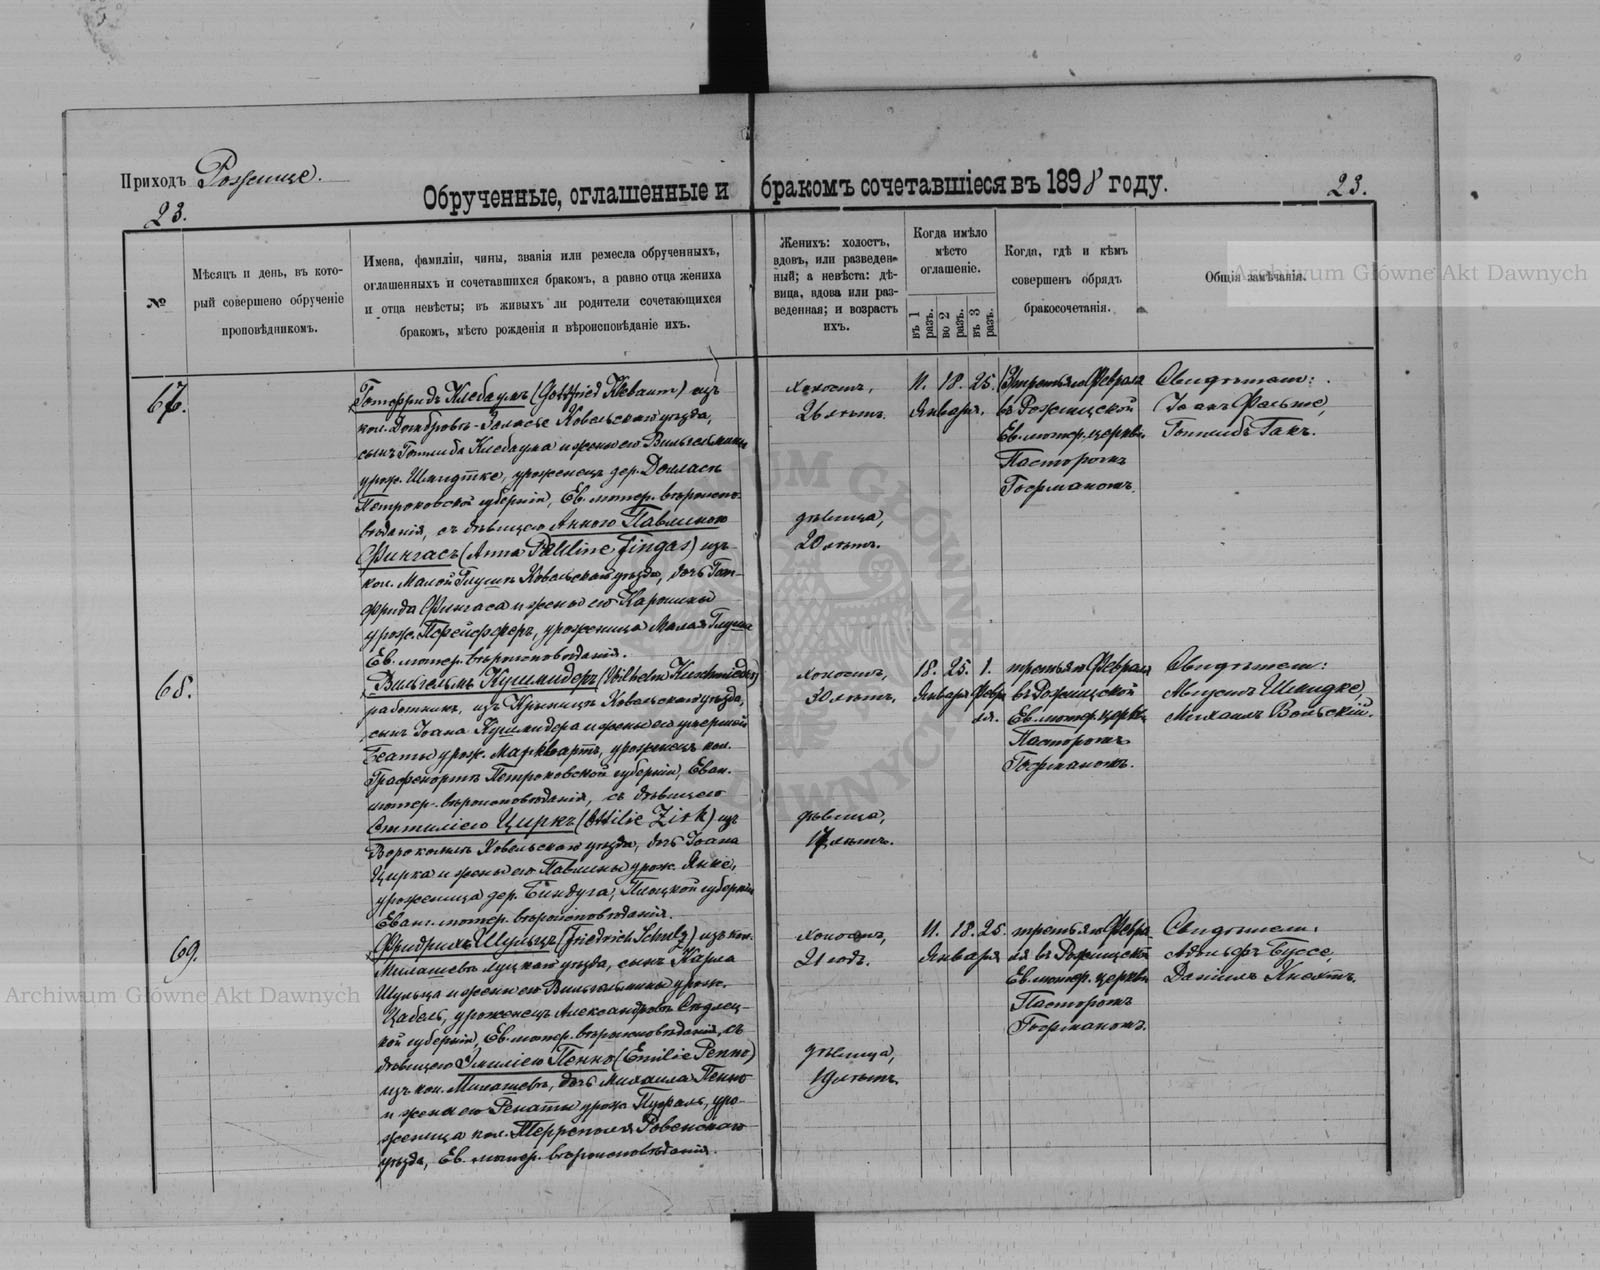 Приходъ Рожище.
Обрученные, оглашенные и бракомъ сочетавшіеся въ 1898 году.
23.
23.
№
Мѣсяцъ и день, въ кото-
рый совершено обрученіе
проповѣдникомъ.
Имена, фамиліи, чины, званія или ремесла обрученныхъ,
оглашенныхъ и сочетавшихся бракомъ, а равно отца жениха
и отца невѣсты; въ живыхъ ли родители сочетающихся
бракомъ, мѣсто рожденія и вѣроисповѣданіе ихъ.
Женихъ: холостъ,
вдовъ, или разведен-
ный; а невѣста: дѣ-
вица, вдова или раз-
веденная; и возрастъ
ихъ.
Когда имѣло
мѣсто
оглашеніе.
въ 1
разъ.
во 2
разъ.
въ 3
разъ.
Когда, гдѣ и кѣмъ
совершенъ обрядъ
бракосочетанія.
Общія замѣчанія.
Archiwum Główne Akt Dawnych
67.
Готфридъ Клебаумъ (Gottfried Klebaum) изъ
кол. Домбровъ-Заласье Ковельскаго уѣзда,
сынъ Готлиба Клебаума и жены его Вильгельмины
урож. Шмидтке, уроженецъ дер.
Петроковской губерніи, Ев. лютер. вѣроиспо-
вѣданія, съ дѣвицею Анною Павлиною
Фингасъ (Anna Pauline Fingas) изъ
кол. Малой Глуши Ковельскаго уѣзда, дочь Гот-
фрида Фингаса и жены его Каролины
урож. Пфейфферъ, уроженица Малая Глуша
Ев. лютер. вѣроисповѣданія.
холостъ,
26 лѣтъ.
дѣвица,
20 лѣтъ.
11. 18. 25.
Января.
третьяго Февраля
въ Рожищской
Ев. лютер. церкви
Пасторомъ
Госрманомъ.
Свидѣтели:
Іоанъ Фельске,
Готлибъ Гакъ.
68.
Вильгельмъ Кушмидеръ (Wilhelm Kuschmieder)
работникъ, изъ Крыницъ Ковельскаго уѣзда,
сынъ Іоана Кушмидера и жены его умершей
Беаты урож. Марквартъ, уроженецъ кол.
Графенортъ Петроковской губерніи, Еван.
лютер. вѣроисповѣданія, съ дѣвицею
Оттиліею Циркъ (Ottilie Zirk) изъ
Ковельскаго уѣзда, дочь Іоана
Цирка и жены его Павлины урож. Янке,
уроженица дер. Биндуга, Плоцкой губерніи
Еванг. лютер. вѣроисповѣданія.
холостъ,
30 лѣтъ,
дѣвица,
17 лѣтъ.
18. 25. 1.
Января Февра
ля.
третьяго Февраля
въ Рожищской
Ев. лютер. церкви
Пасторомъ
Госрманомъ.
Свидѣтели:
Августъ Шмидке,
Михаилъ Вольскій.
69.
Фридрихъ Шульцъ (Friedrich Schulz) изъ кол.
Милашевъ Луцкаго уѣзда, сынъ Карла
Шульца и жены его Вильгельмины урож.
Цабель, уроженецъ Александровъ Сѣдлец-
кой губерніи, Ев. лютер. вѣроисповѣданія, съ
дѣвицею Эмиліею Пенно (Emilie Penno)
изъ кол. Милашевъ, дочь Михаила Пенно
и жены его Ренаты урож. Пуфаль, уро-
женица кол. Ровенскаго
уѣзда, Ев. лютер. вѣроисповѣданія.
холостъ,
21 годъ.
дѣвица,
19 лѣтъ.
11. 18. 25.
Января
третьяго Февра
ля въ Рожищской
Ев. лютер. церкви
Пасторомъ
Госрманомъ.
Свидѣтели:
Адольфъ Буссе,
Данiилъ Кноптъ.
Archiwum Główne Akt Dawnych